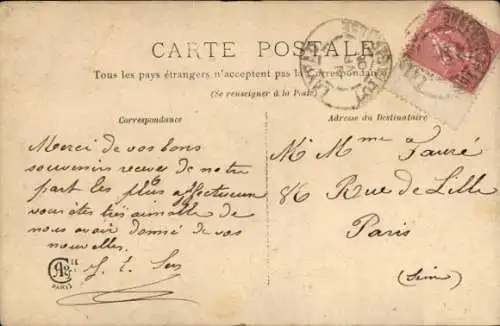 CARTE POSTALE
Tous les pays étrangers n'acceptent pas la Correspondance
(Se renseigner à la Poste)
Correspondance
Adresse du Destinataire
Merci de vos bons
souvenirs recevez de notre
part les plus affectueux
vous êtes très aimable de
nous avoir donné de vos
nouvelles.
M Mme Fauré
86 Rue de Lille
Paris
(Seine)
PARIS